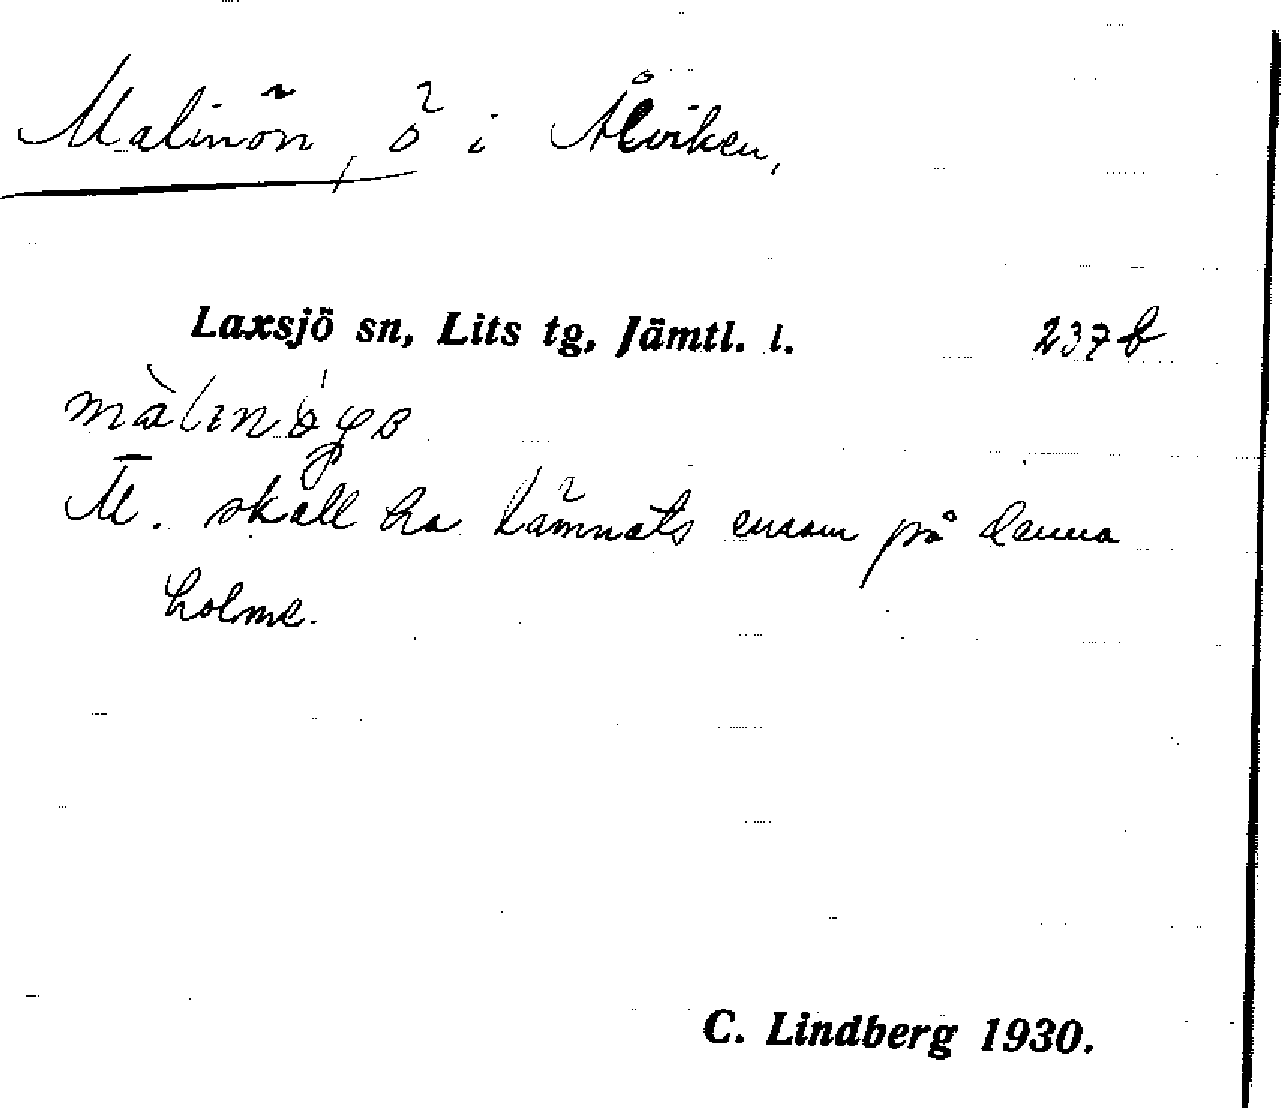 Malinön, ö i Ålviken,
Laxsjö sn, Lits tg, Jämtl. l. 237 b
M. skall ha lämnats ensam på denna
holme.
C. Lindberg 1930.